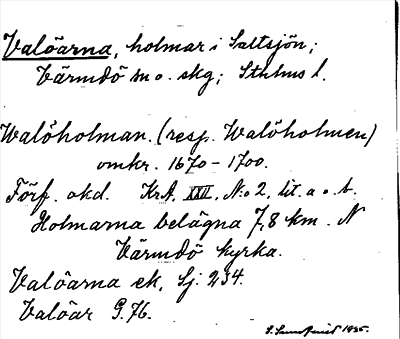 Valöarna, holmar i Saltsjön;
Värmdö sn o. skg; Sthlms l.
Walöholman. (resp. Walöholmen)
omkr. 1670-1700.
Förf. okd. KrA, XXII, N:o 2, lit. a o. b.
Holmarna belägna 7,8 km. N
Värmdö kyrka.
Valöarna ek, Sj. 234.
Valöar G.76.
S. Sundquist 1935.